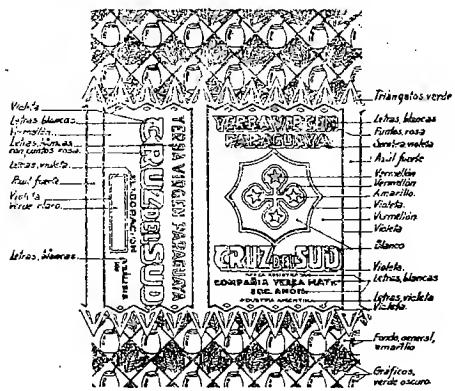 Triángulos, verde
Violeta
Letras, blancas
Vermellón
Letras, blancas
con puntos rosa
Letras, violeta
Azul fuerte
Violeta
Verde claro
Letras, blancas
CRUZ DEL SUD
YERBA VIRGEN PARAGUAYA
ELABORACION
YERBA VIRGEN
PARAGUAYA
CRUZ DEL SUD
COMPAÑIA YERBA MATE
SOC. ANÓN.
INDUSTRIA ARGENTINA
Letras, blancas
Fondos, rosa
Sombra violeta
Azul fuerte
Vermellón
Vermellón
Amarillo
Violeta
Vermellón
Violeta
Blanco
Violeta
Letras, blancas
Letras, violeta
Violeta
Fondo, general,
amarillo
Gráficos,
verde oscuro